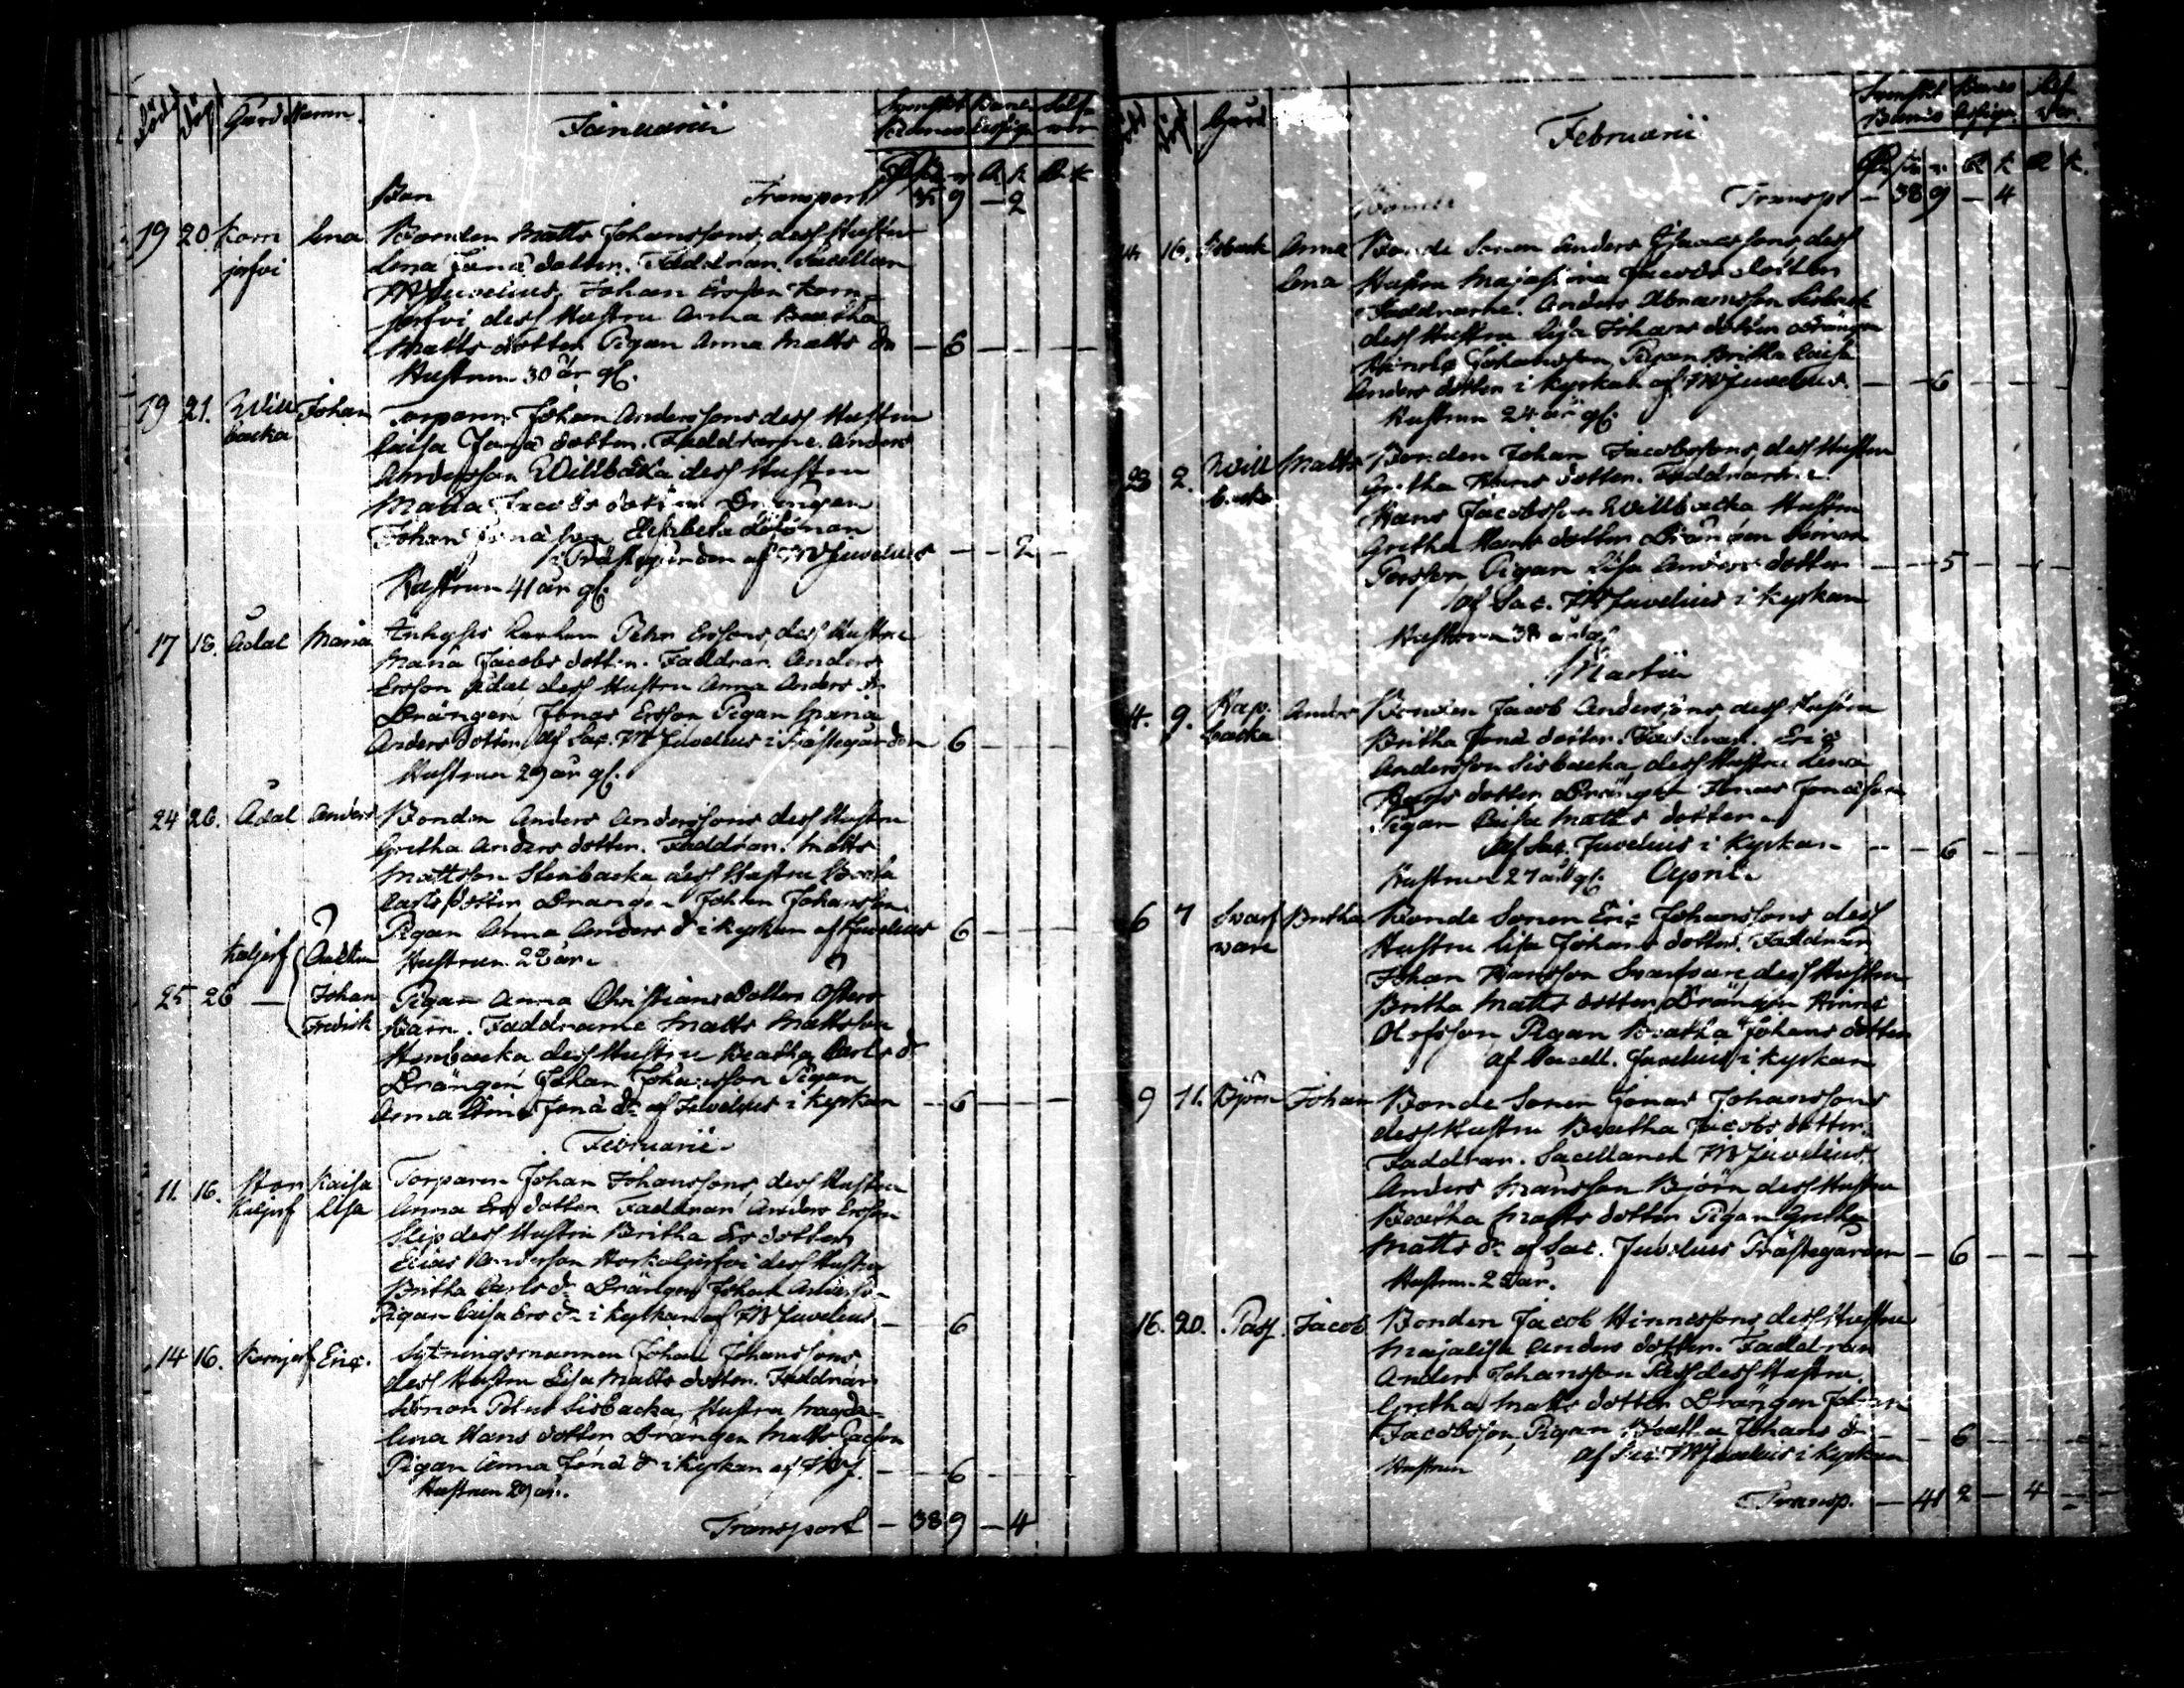 Född Döpt Gård Namn. Januarii Banco Silfwer
Barn Transport 35 9 - 2
19 20. Korn Lena Bonden Matts Johanssons, dess Hustru
jerfvi Lena Jona dotter. Faddrar. Sacellan
MJuvelius, Johan Ersson Korn
jerfvi dess Hustru Anna Beatha
Matts dotter Pigan Anna Matts dr — 6 — — —
Hustrun 30 år gl.
19 21. Will Johan Torparn Johan Anderssons dess Hustru
backa Caisa Jona dotter. Faddrarne. Anders
Andersson Willbacka dess Hustru
Maria Jacobs dotter Drängen
Johan Jona son Elisabeta
i Prästegården af MJuvelius — — 2 —
Hustrun 41 år gl.
17 18. Ådal Maria Inhyses karlen Pehr Erssons, dess Hustru
Maria Jacobs dotter. Faddrar. Anders
Ersson Ådal dess Hustru Anna Anders dr
Drängen Jonas Ersson Pigan Maria
Anders dotter af Sac. M Juvelius i Prästegården 6 — — —
Hustrun 29 år gl.
24 26. Ådal Anders Bonden Anders Anderssons dess Hustru
Gretha Anders dotter. Faddrar. Matts
Mattsson Stenbacka dess Hustru Beata
Carls dotter Drängen Johan Johansson
Pigan Anna Anders d i kyrkan af Juvelius 6 — — —
Kaljerf Oäkta Hustrun 22 år.
25 26 — Johan Pigan Anna Christians dotters
Fredrick Barn. Faddrarne Matts Mattsson
Stenbacka dess Hustru Beatha Carls d
Drängen Johan Johansson Pigan
Anna Jona dr af Juvelius i kyrkan — 6 — — —
Februarii
11. 16. Stor Kaisa Torparen Johan Johanssons, dess Hustru
Kaljerf Lisa Anna Ers dotter. Faddrar Anders Ersson
Slip dess Hustru Britha Ers dotter
Elias Andersson Storkaljerfvi dess Hustru
Britha Carls dr Drängen Johan Andersson
Pigan Caisa Ers dr i kyrkan af M Juvelius — 6
14 16. Kornjerf Eric. Sytningsmannen Johan Johanssons
dess Hustru Lisa Matts dotter. Faddrar
Simon Sisbacka, Hustru Magda-
lena Hans dotter Drängen Matts
Pigan Anna Jona d i kyrkan af MJ. — — 6 —
Hustrun 29 år.
Transport — 38 9 — 4
Gård Februarii Banco
Transpt — 38 9 — 4
14 16. Anna Bonde Sonen Anders Isaacssons dess
Lena Hustru Majastina Jacobs dotter
Faddrarne. Anders Abramsson Sisback
dess Hustru Lisa Johans dotter Drängen
Hinric Johansson, Pigan Britha Caisa
Anders dotter i kyrkan af MJuvelius. — 6 — —
Hustrun 24 år gl.
28 2. Will Matts Bonden Johan Jacobssons, dess Hustru
backa Gretha Hans dotter. Faddrarne.
Hans Jacobsson Willbacka Hustru
Gretha Hans dotter Drängen Simon
Persson, Pigan Lisa Anders dotter — 5 — —
af Sac. MJuvelius i kyrkan
Hustrun 38 år gl.
Martii
4. 9. Rap. Anders Bonden Jacob Anderssons dess Hustru
backa Britha Jona dotter. Faddrar. Eric
Andersson Sisbacka, dess Hustru Lena
Hans dotter Drängen Jonas Jonasson
Pigan Caisa Matts dotter
af Sac. Juvelius i kyrkan — 6 — —
Hustrun 27 år gl. April.
6 7 Svarf Britha Bonde Sonen Eric Johanssons dess
ware Hustru Lisa Johans dotter. Faddrar
Johan Hansson Svarfvare dess Hustru
Britha Matts dotter Drängen Hinric
Olofsson Pigan Beatha Johans dotter
af Sacell. Juvelius i kyrkan
9 11. Björn Johan Bonde Sonen Jonas Johanssons
dess Hustru Beatha Jacobs dotter.
Faddrar. Sacellanen MJuvelius,
Anders Mansson Björn dess Hustru
Beatha Matts dotter Pigan Gretha
Matts dr af Sac. Juvelius Prästegården — 6 — — —
Hustrun 25 år.
16. 20. Pass. Jacob Bonden Jacob Hinrcssons dess Hustru
Majalisa Anders dotter. Faddrar
Anders Johansson Pass dess Hustru.
Gretha Matts dotter Drängen Johan
Jacobsson, Pigan Beatha Johans dr — 6 — — —
Hustrun af Sac. MJuvelius i kyrkan
Transp. — 41 2 — 4 — —